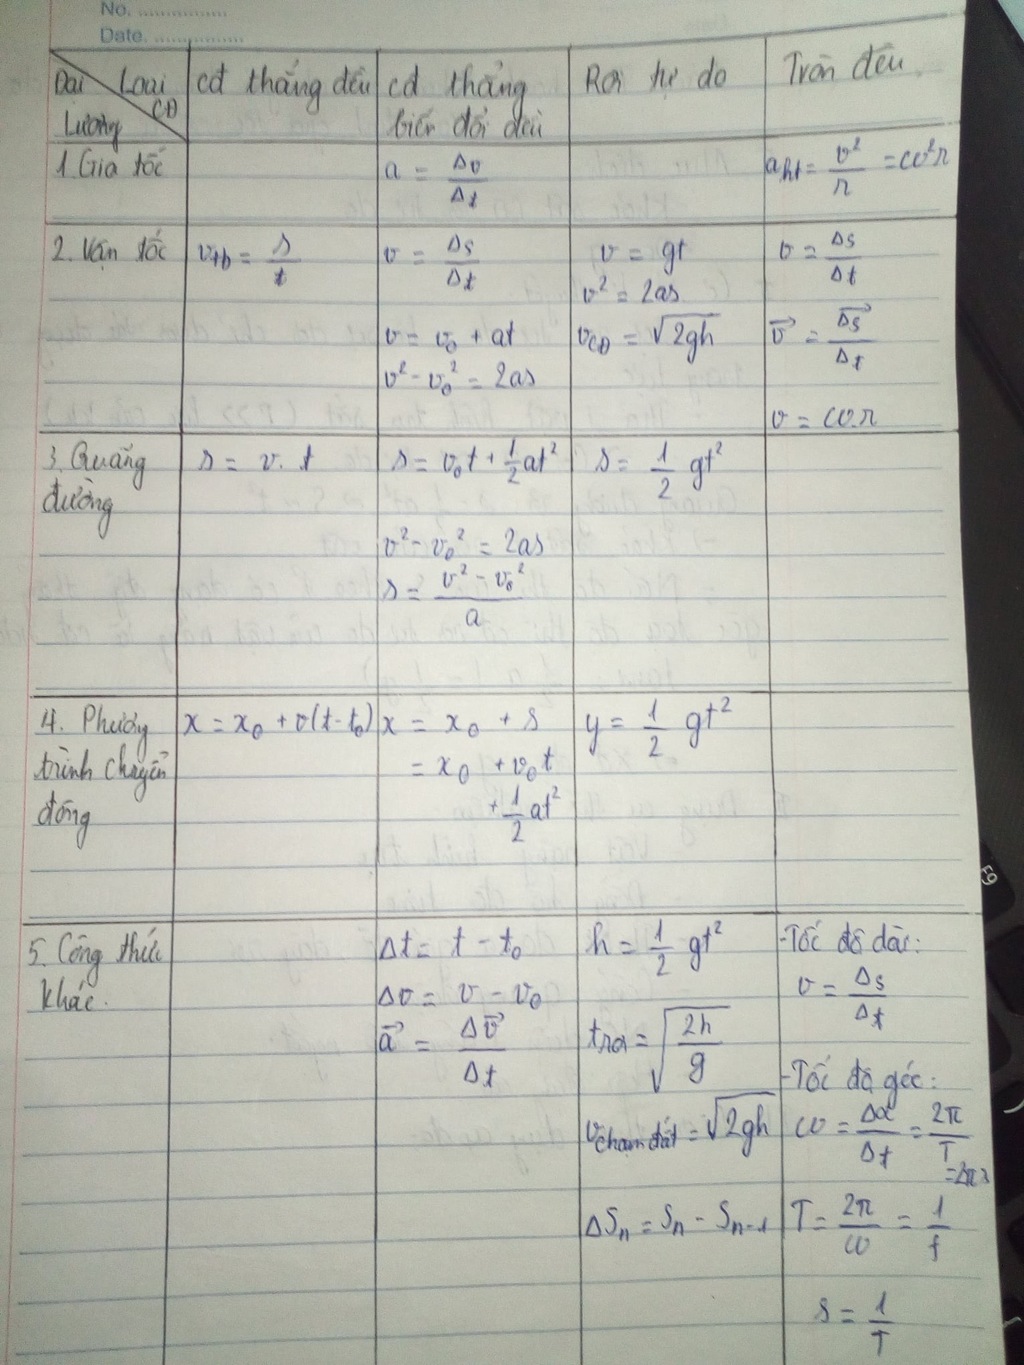 No. ................
Date. ................
Đại Loại CĐ
Lượng
cđ thẳng đều
cđ thẳng
biến đổi đều
Rơi tự do
Tròn đều
1. Gia tốc
a = Δv/Δt
aht = v²/r = ω²r
2. Vận tốc
vtb = s/t
v = Δs/Δt
v = v₀ + at
v² - v₀² = 2as
v = gt
v² = 2as
vCĐ = √2gh
v = Δs/Δt
v⃗ = Δs⃗/Δt
v = ω.r
3. Quãng
đường
s = v. t
s = v₀t + 1/2 at²
v² - v₀² = 2as
s = (v² - v₀²)/a
s = 1/2 gt²
4. Phương
trình chuyển
động
x = x₀ + v(t - t₀)
x = x₀ + s
= x₀ + v₀t
+ 1/2 at²
y = 1/2 gt²
5. Công thức
khác.
Δt = t - t₀
Δv = v - v₀
a⃗ = Δv⃗/Δt
h = 1/2 gt²
trơi = √(2h/g)
vchạm đất = √2gh
ΔSn = Sn - Sn-1
- Tốc độ dài:
v = Δs/Δt
- Tốc độ góc:
ω = Δα/Δt = 2π/T
T = 2π/ω = 1/f
s = 1/T
F9